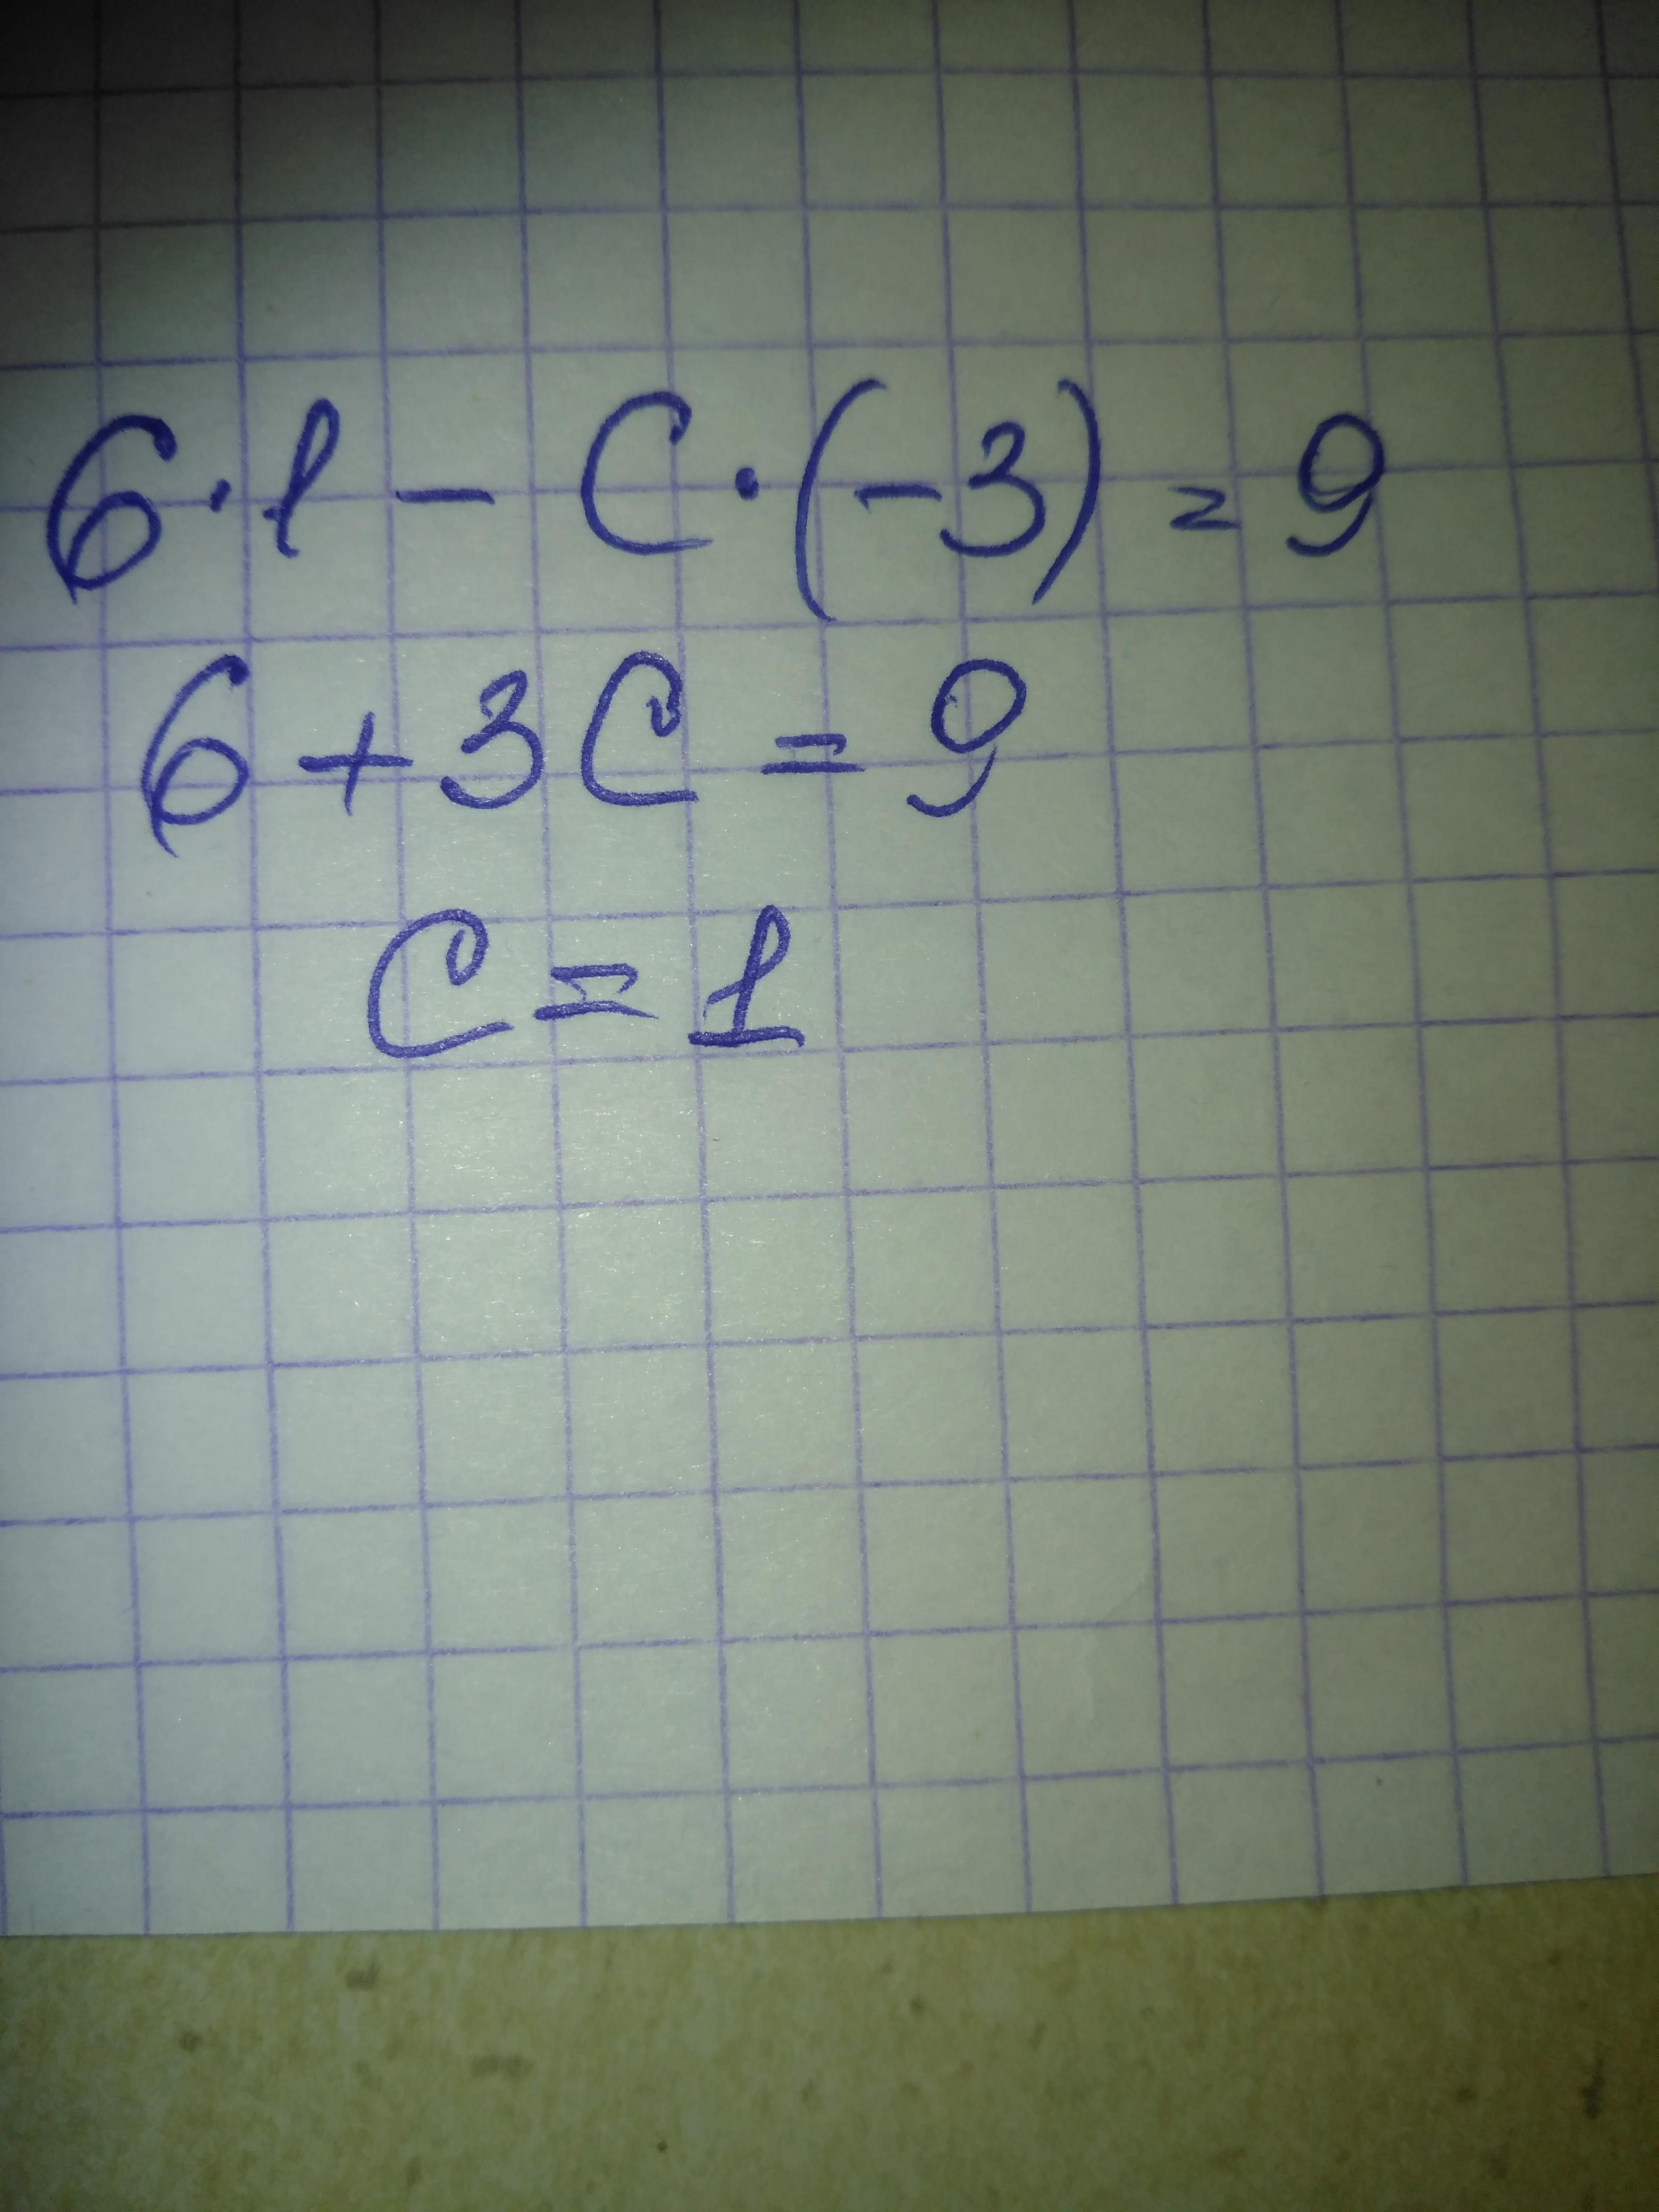 6·1 - C·(-3) = 9
6 + 3C = 9
C = 1